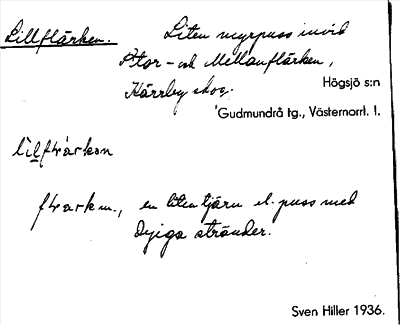 Lillflärken. Liten myrpuss invid
Stor- och Mellanflärken,
Kärrby skog. Högsjö s:n
Gudmundrå tg., Västernorrl. l.
en liten tjärn el. puss med
dyiga stränder.
Sven Hiller 1936.